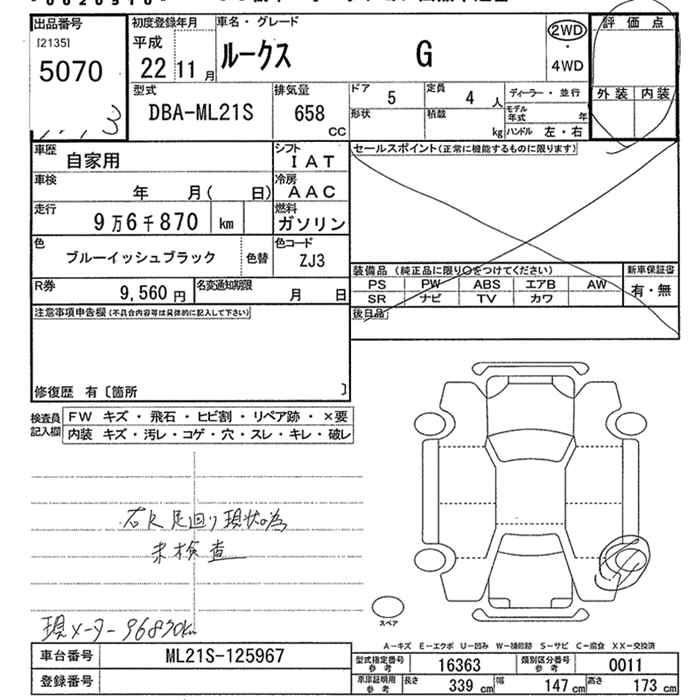 出品番号 初度登録年月 車名・グレード 評価点
[2135] 平成 ルークス G 2WD
5070 22 11月 ・4WD
型式 排気量 ドア 5 定員 4人 ディーラー・並行 外装 内装
DBA-ML21S 658 CC 形状 積載 kg モデル年式 年
ハンドル 左・右
車歴 自家用 シフト IAT セールスポイント(正常に機能するものに限ります)
車検 年 月( 日) 冷房 AAC
走行 9万6千870 km 燃料 ガソリン
色 ブルーイッシュブラック 色替 色コード ZJ3
装備品(純正品に限り○をつけてください) 新車保証書
PS PW ABS エアB AW 有・無
SR ナビ TV カワ
R券 9,560円 名変通知期限 月 日
後日品
注意事項申告欄(不具合内容等は具体的に記入して下さい)
修復歴 有〔箇所 〕
検査員記入欄 FW キズ・飛石・ヒビ割・リペア跡・×要
内装 キズ・汚レ・コゲ・穴・スレ・キレ・破レ
足回り現状の為
未検査
スペア
現メーター96870km
A-キズ E-エクボ U-凹み W-補修跡 S-サビ C-腐食 XX-交換済
車台番号 ML21S-125967 型式指定番号参考 16363 類別区分番号参考 0011
登録番号 車庫証明用参考 長さ 339cm 幅 147cm 高さ 173cm